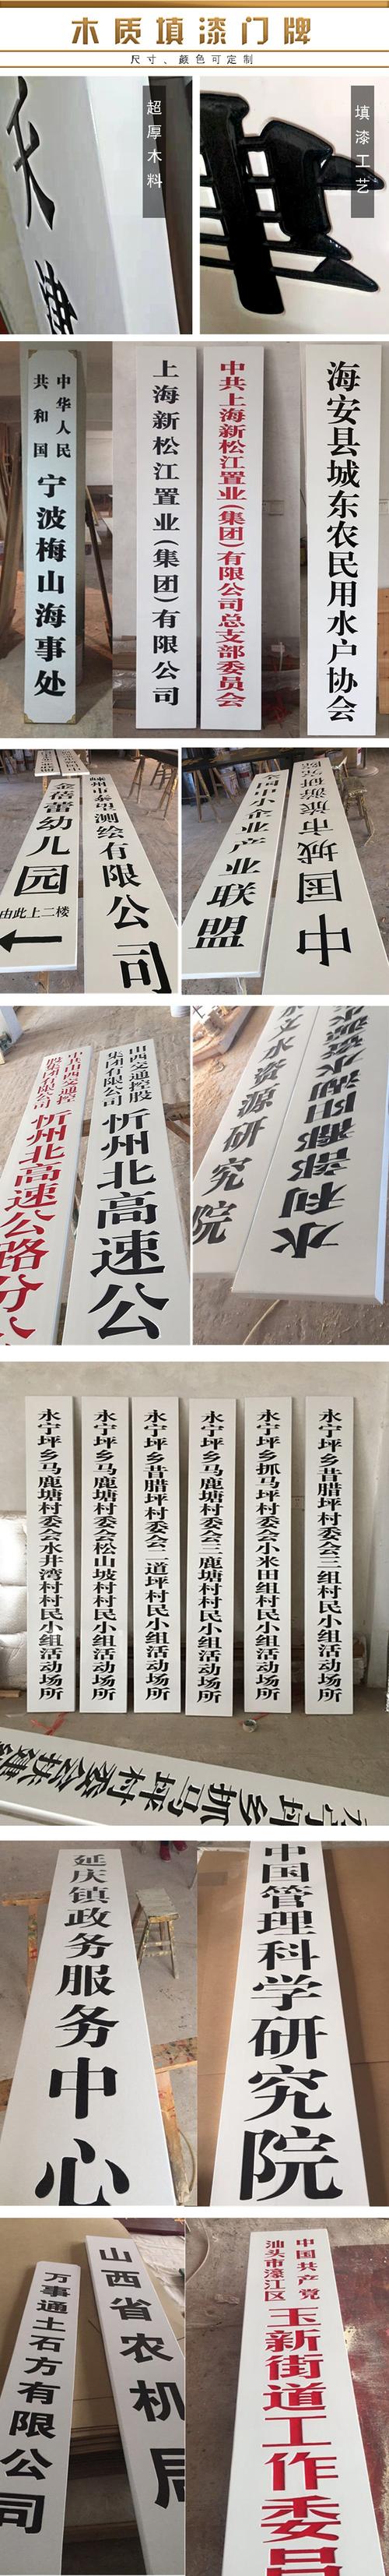 木质填漆门牌
尺寸、颜色可定制
超厚木料
填漆工艺
中华人民
共和国
宁波梅山海事处
上海新松江置业(集团)有限公司
中共上海新松江置业(集团)有限公司总支部委员会
海安县城东农民用水户协会
金蓓蕾幼儿园
由此上二楼
嵊州市泰垣测绘有限公司
中小企业产业联盟
中国城市
中共山西交通控股
集团有限公司
忻州北高速公路分公
山西交通控股
集团有限公司
忻州北高速公
水资源研究院
水利部鄱阳湖水资源
永宁坪乡马鹿塘村委会水井湾村村民小组活动场所
永宁坪乡马鹿塘村委会松山坡村村民小组活动场所
永宁坪乡昔腊坪村委会二道坪村民小组活动场所
永宁坪乡马鹿塘村委会三鹿塘村村民小组活动场所
永宁坪乡抓马坪村委会小米田组村民小组活动场所
永宁坪乡昔腊坪村委会三组村民小组活动场所
永宁坪乡抓马坪村委会扶建
延庆镇政务服务中心
中国管理科学研究院
万事通土石方有限公司
山西省农机局
中国共产党
汕头市濠江区
玉新街道工作委员